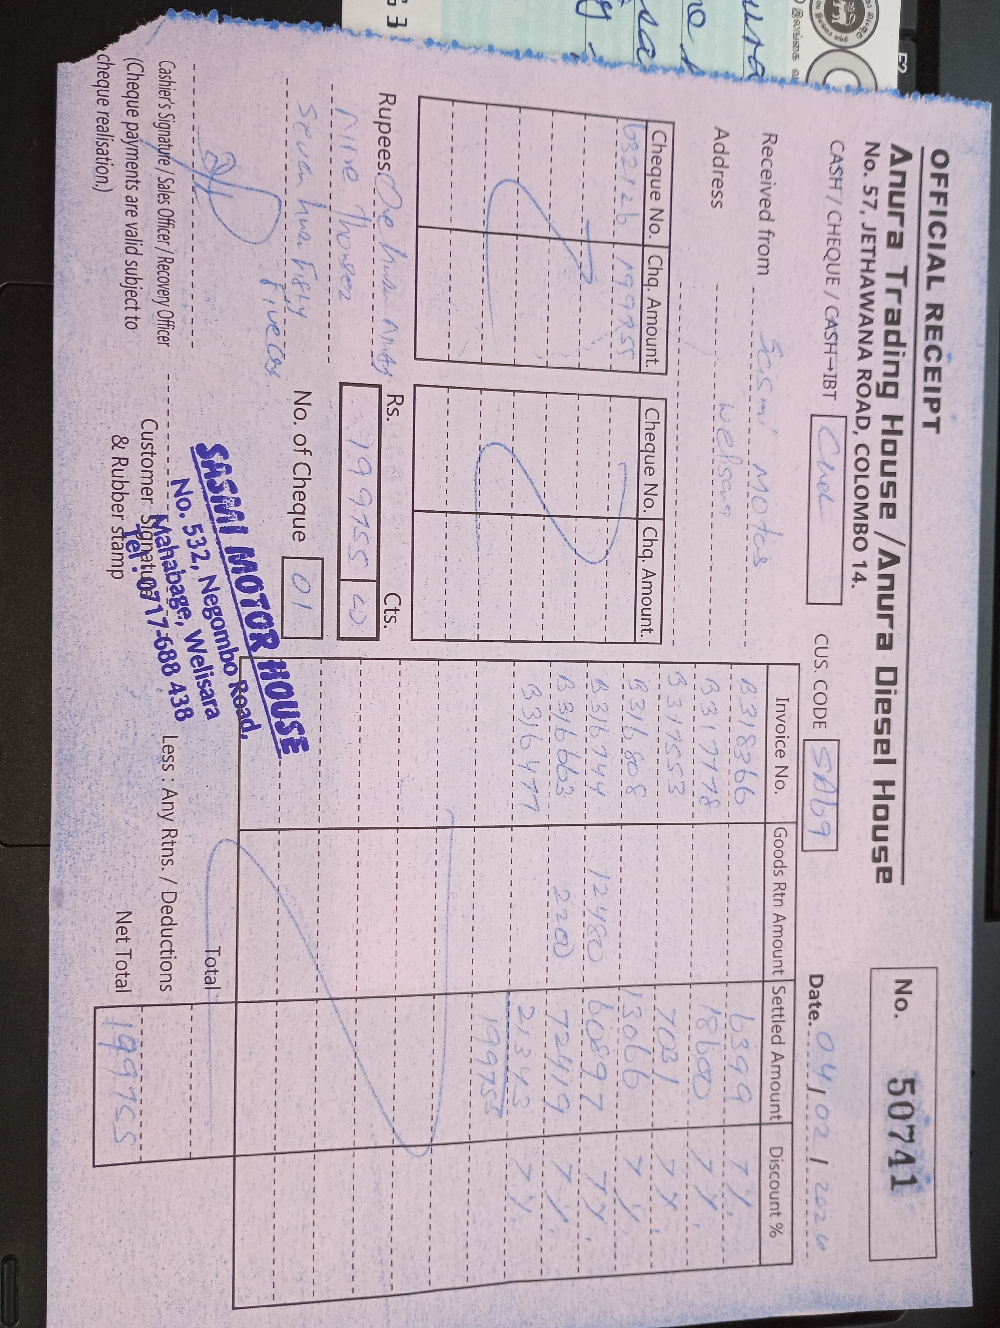 OFFICIAL RECEIPT
Anura Trading House / Anura Diesel House
No. 57, JETHAWANA ROAD, COLOMBO 14.
No. 50741
CASH / CHEQUE / CASH→IBT CUS. CODE SA69 Date. 04/02/2026
Received from Sasmi Motos
Address Welisara
Cheque No. Chq. Amount.
632126 199755
Cheque No. Chq. Amount.
Rupees One Nine Thousen
Seven Five
Rs. Cts.
199755
No. of Cheque 01
Invoice No. Goods Rtn Amount Settled Amount Discount %
B318366 6399 7%
B317778 18600 7%
B317553 7031 7%
B316808 13066 7%
B316744 12480 60897 7%
B316663 2200 72419 7%
B316477 21343 7%
199755
Total
Less : Any Rtns. / Deductions
Net Total 199755
Cashier's Signature / Sales Officer / Recovery Officer
(Cheque payments are valid subject to
cheque realisation.)
Customer Signature
& Rubber stamp
SASMI MOTOR HOUSE
No. 532, Negombo Road,
Mahabage, Welisara
Tel : 0717-688 438